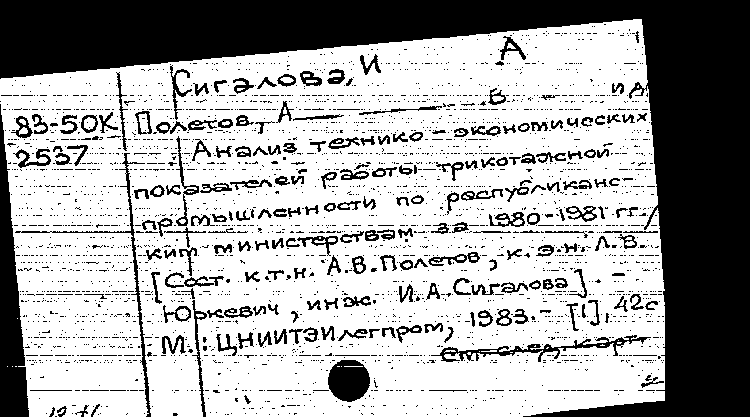 Сигалова, И А
83-50К Полетов, А — — В — и др
2537 Анализ технико-экономических
показателей работы трикотажной
промышленности по республиканс-
ким министерствам за 1980-1981 гг. /
[Сост. к.т.н. А.В. Полетов, к.э.н. Л.В.
Юркевич, инж. И.А. Сигалова]. –
М.: ЦНИИТЭИлегпром, 1983. – [1], 42с
См. след. карт.